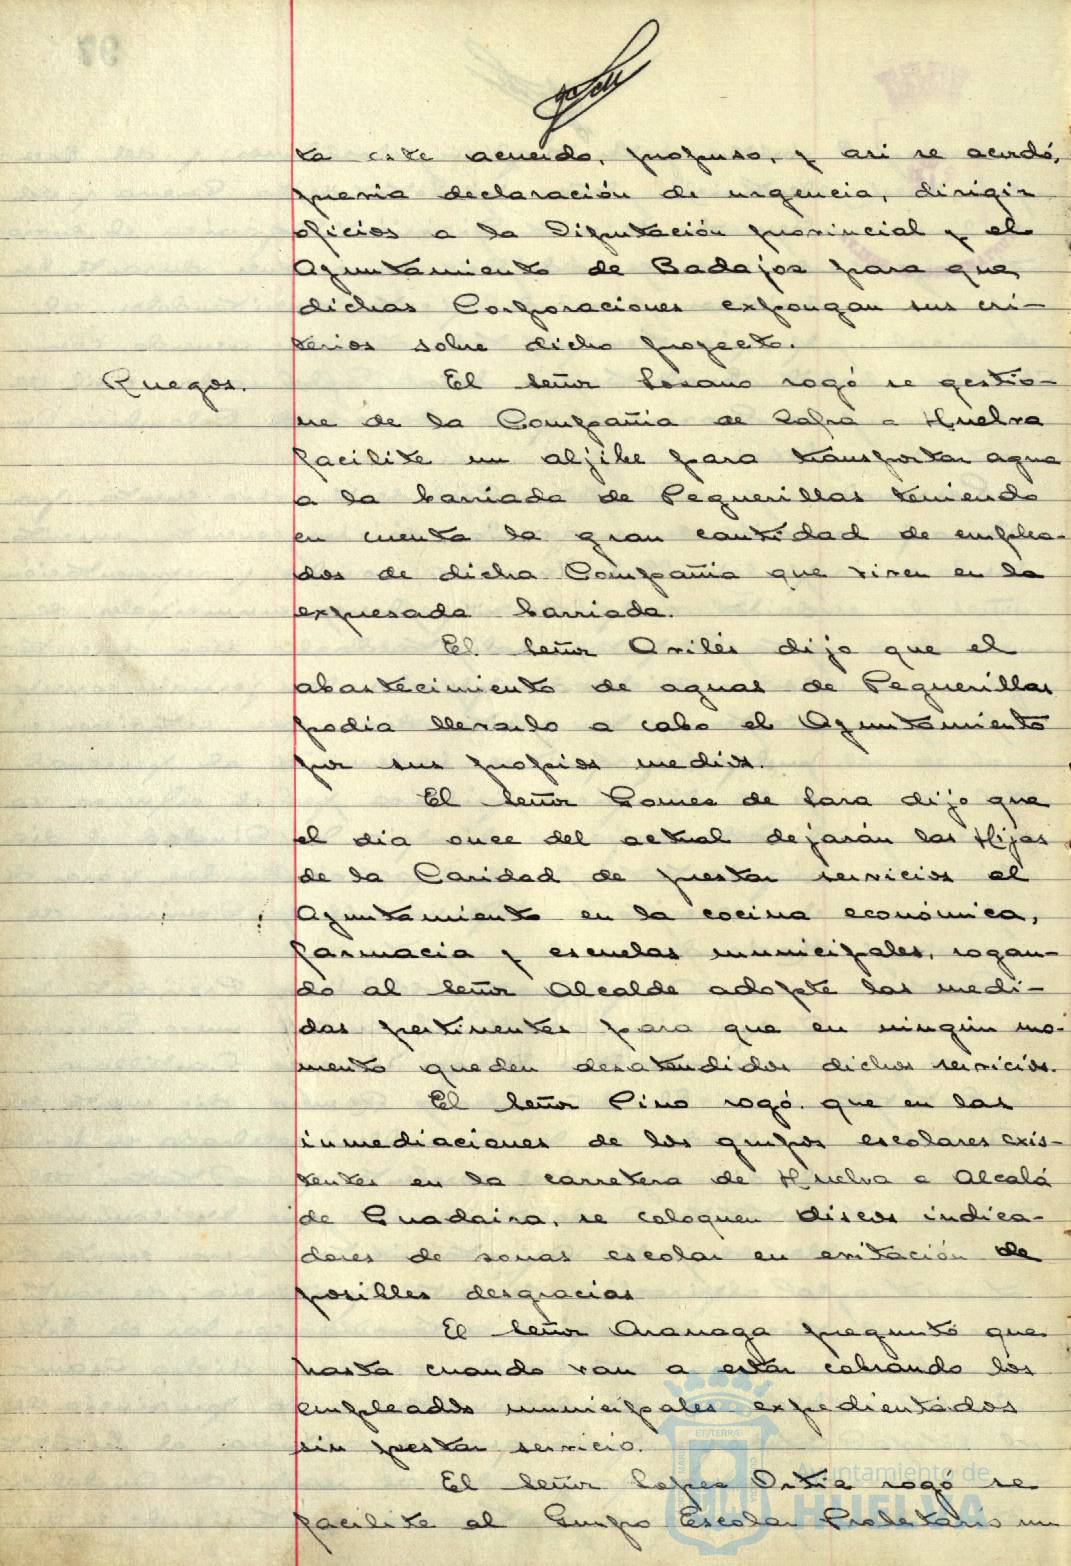 97
ta este acuerdo, propuso, y asi se acordó,
previa declaración de urgencia, dirigir
oficios a la Diputación provincial y al
Ayuntamiento de Badajoz para que
dichas Corporaciones expongan sus cri-
terios sobre dicho proyecto.
Ruegos.
El Señor Lozano rogó se gestio-
ne de la Compañia de Zafra a Huelva
facilite un aljibe para transportar agua
a la barriada de Peguerillas teniendo
en cuenta la gran cantidad de emplea-
dos de dicha Compañia que viven en la
expresada barriada.
El Señor Avilés dijo que el
abastecimiento de aguas de Peguerillas
podia llevarlo a cabo el Ayuntamiento
por sus propios medios.
El Señor Gomez de Lara dijo que
el dia once del actual dejarán las Hijas
de la Caridad de prestar servicios al
Ayuntamiento en la cocina económica,
farmacia y escuelas municipales, rogan-
do al Señor Alcalde adopte las medi-
das pertinentes para que en ningún mo-
mento queden desatendidos dichos servicios.
El Señor Pino rogó que en las
inmediaciones de los grupos escolares exis-
tentes en la carretera de Huelva a Alcalá
de Guadaira, se coloquen discos indica-
dores de zonas escolar en evitación de
posibles desgracias
El Señor Aranaga preguntó que
hasta cuando van a estar cobrando los
empleados municipales expedientados
sin prestar servicio.
El Señor Lopez Ortia rogó se
facilite al Grupo Escolar Proletario un
Ayuntamiento de
HUELVA